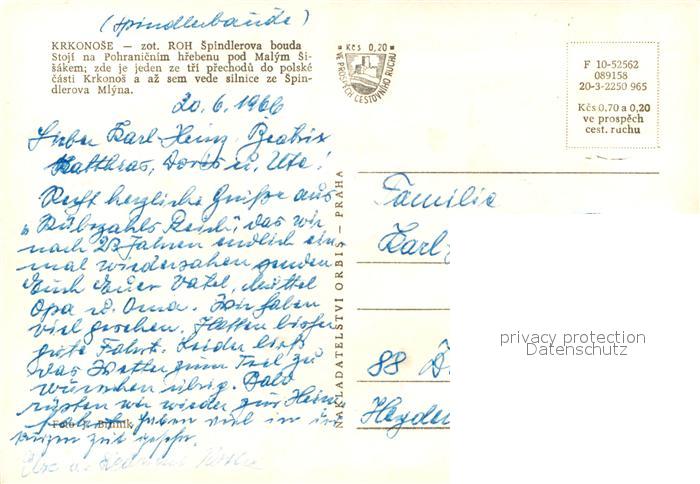 (Spindlerbaude)
KRKONOŠE — zot. ROH Špindlerova bouda
Stojí na Pohraničním hřebenu pod Malým Ši-
šákem; zde je jeden ze tří přechodů do polské
části Krkonoš a až sem vede silnice ze Špin-
dlerova Mlýna.
20.6.1966
Lieber Karl-Heinz, Beatrix
Matthias, Dorés u. Ute!
Recht herzliche Grüße aus
"Rübezahls Reich", das wir
nach 23 Jahren endlich ein
mal wiedersahen senden
Euch Euer Vater, Muttel
Opa u. Oma. Wir haben
viel gesehen. Hatten bisher
gute Fahrt. Leider ließ
das Wetter zum Teil zu
wünschen übrig. Bald
rüsten wir wieder zur Heim
fahrt haben viel in der
kurzen Zeit gesehen.
Foto
NAKLADATELSTVÍ ORBIS — PRAHA
Kčs 0,20
VE PROSPĚCH CESTOVNÍHO RUCHU
F 10-52562
089158
20-3-2250 965
Kčs 0,70 a 0,20
ve prospěch
cest. ruchu
Familie
Karl-
88
Heyden
privacy protection
Datenschutz